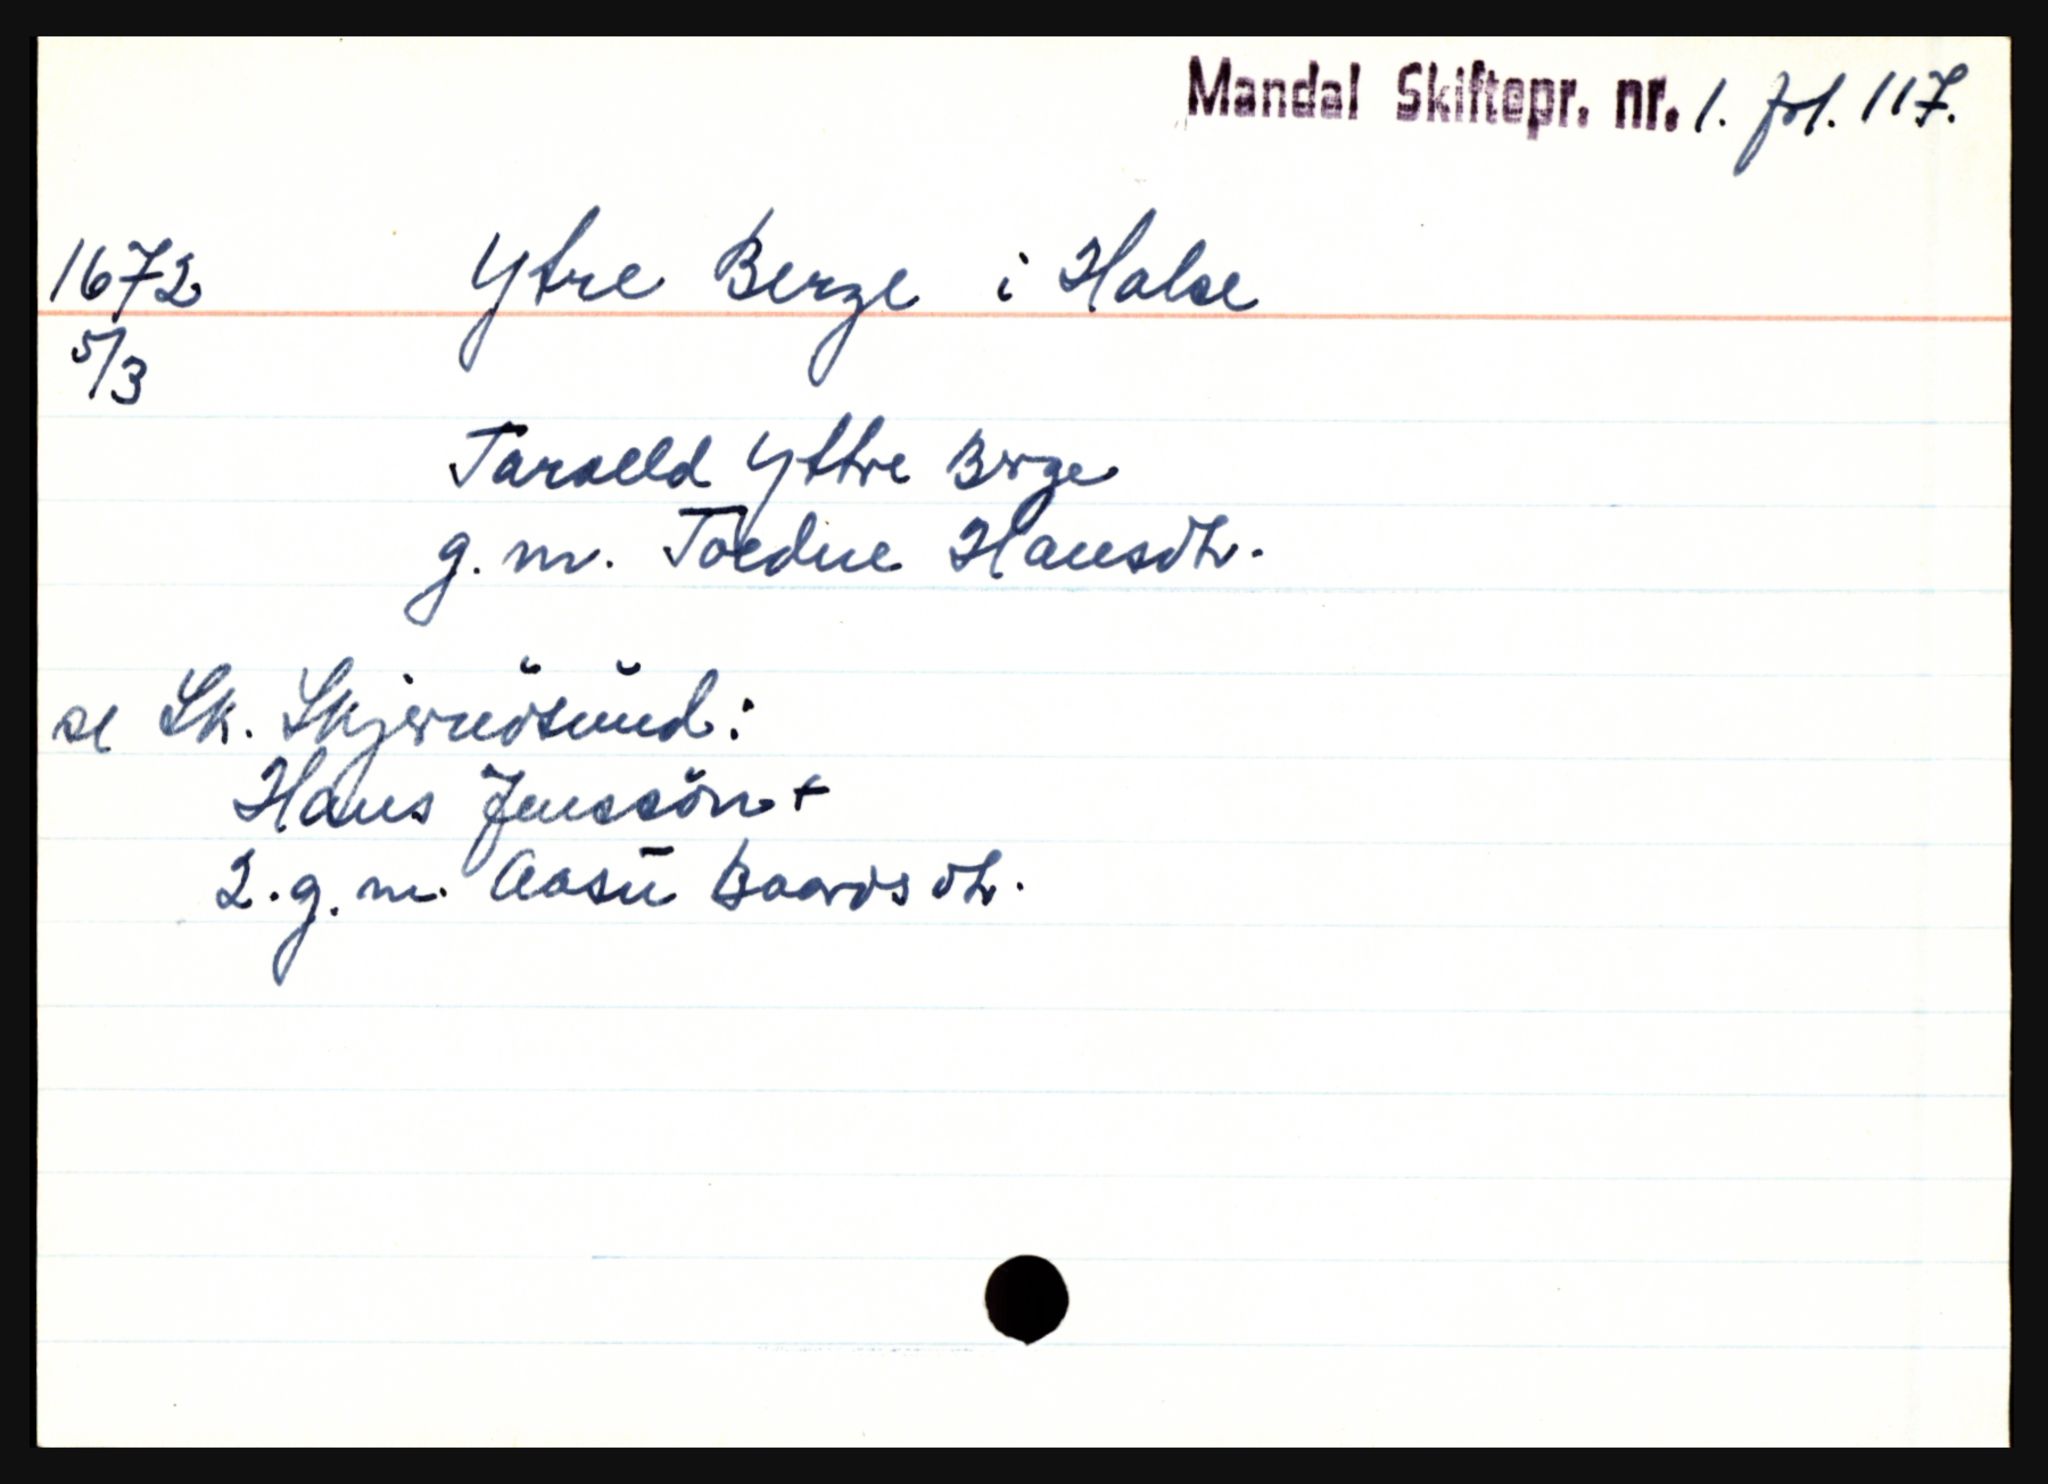 Mandal Skiftepr. nr. 1. fol. 117.
1672 Ytre Berge i Halse
5/3
Taraeld Yttre Berge
g. m. Toedne Hansdtr.
se Sk. Skjernösŭnd:
Hans Jenssön +
2. g. m. Aasŭ Baardsdtr.